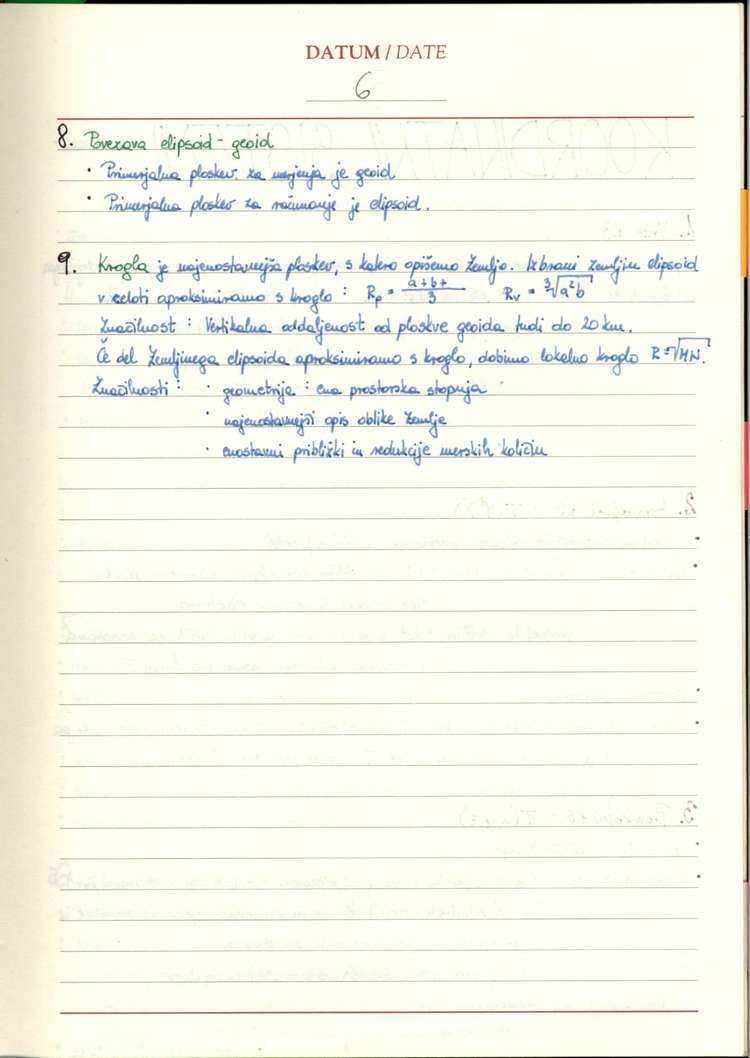 DATUM / DATE
6
8. Povezava elipsoid - geoid
· Primerjalna ploskev za merjenja je geoid
· Primerjalna ploskev za računanje je elipsoid.
9. Krogla je najenostavnejša ploskev, s katero opišemo Zemljo. Izbrani Zemljin elipsoid
v celoti aproksimiramo s kroglo : Rp = (a+b+)/3 Rv = ∛(a²b)
Značilnost : Vertikalna oddaljenost od ploskve geoida tudi do 20 km.
Če del Zemljinega elipsoida aproksimiramo s kroglo, dobimo lokalno kroglo R = √MN.
Značilnosti : · geometrija : ena prostorska stopnja
· najenostavnejši opis oblike Zemlje
· enostavni približki in redukcije merskih količin